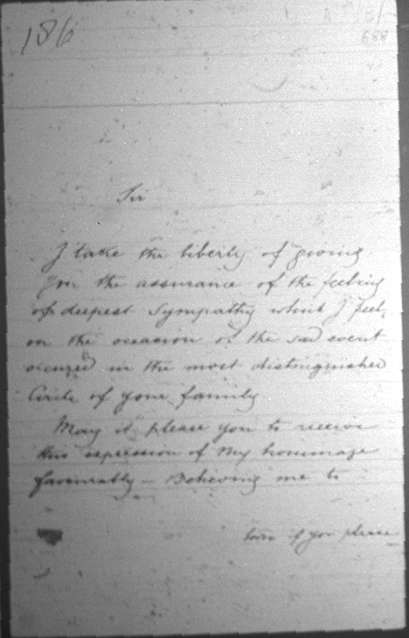 186
688
Sir
I take the liberty of giving
you the assurance of the feeling
of deepest Sympathy which I feel,
on the occasion of the sad event
occured in the most distinguished
Circle of your family
May it please you to receive
this expression of my hommage
favourably – Believing me to
turn if you please